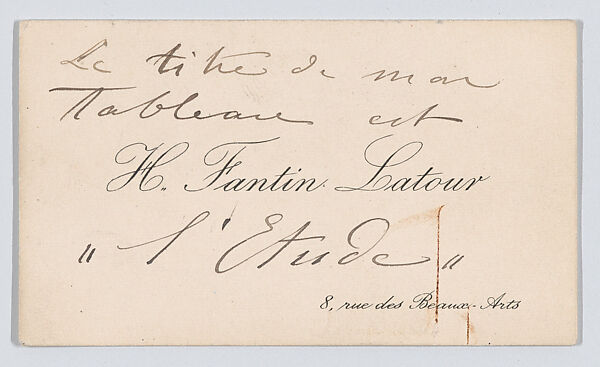 Le titre de mon
Tableau est
H. Fantin-Latour
" l'Etude "
8, rue des Beaux-Arts